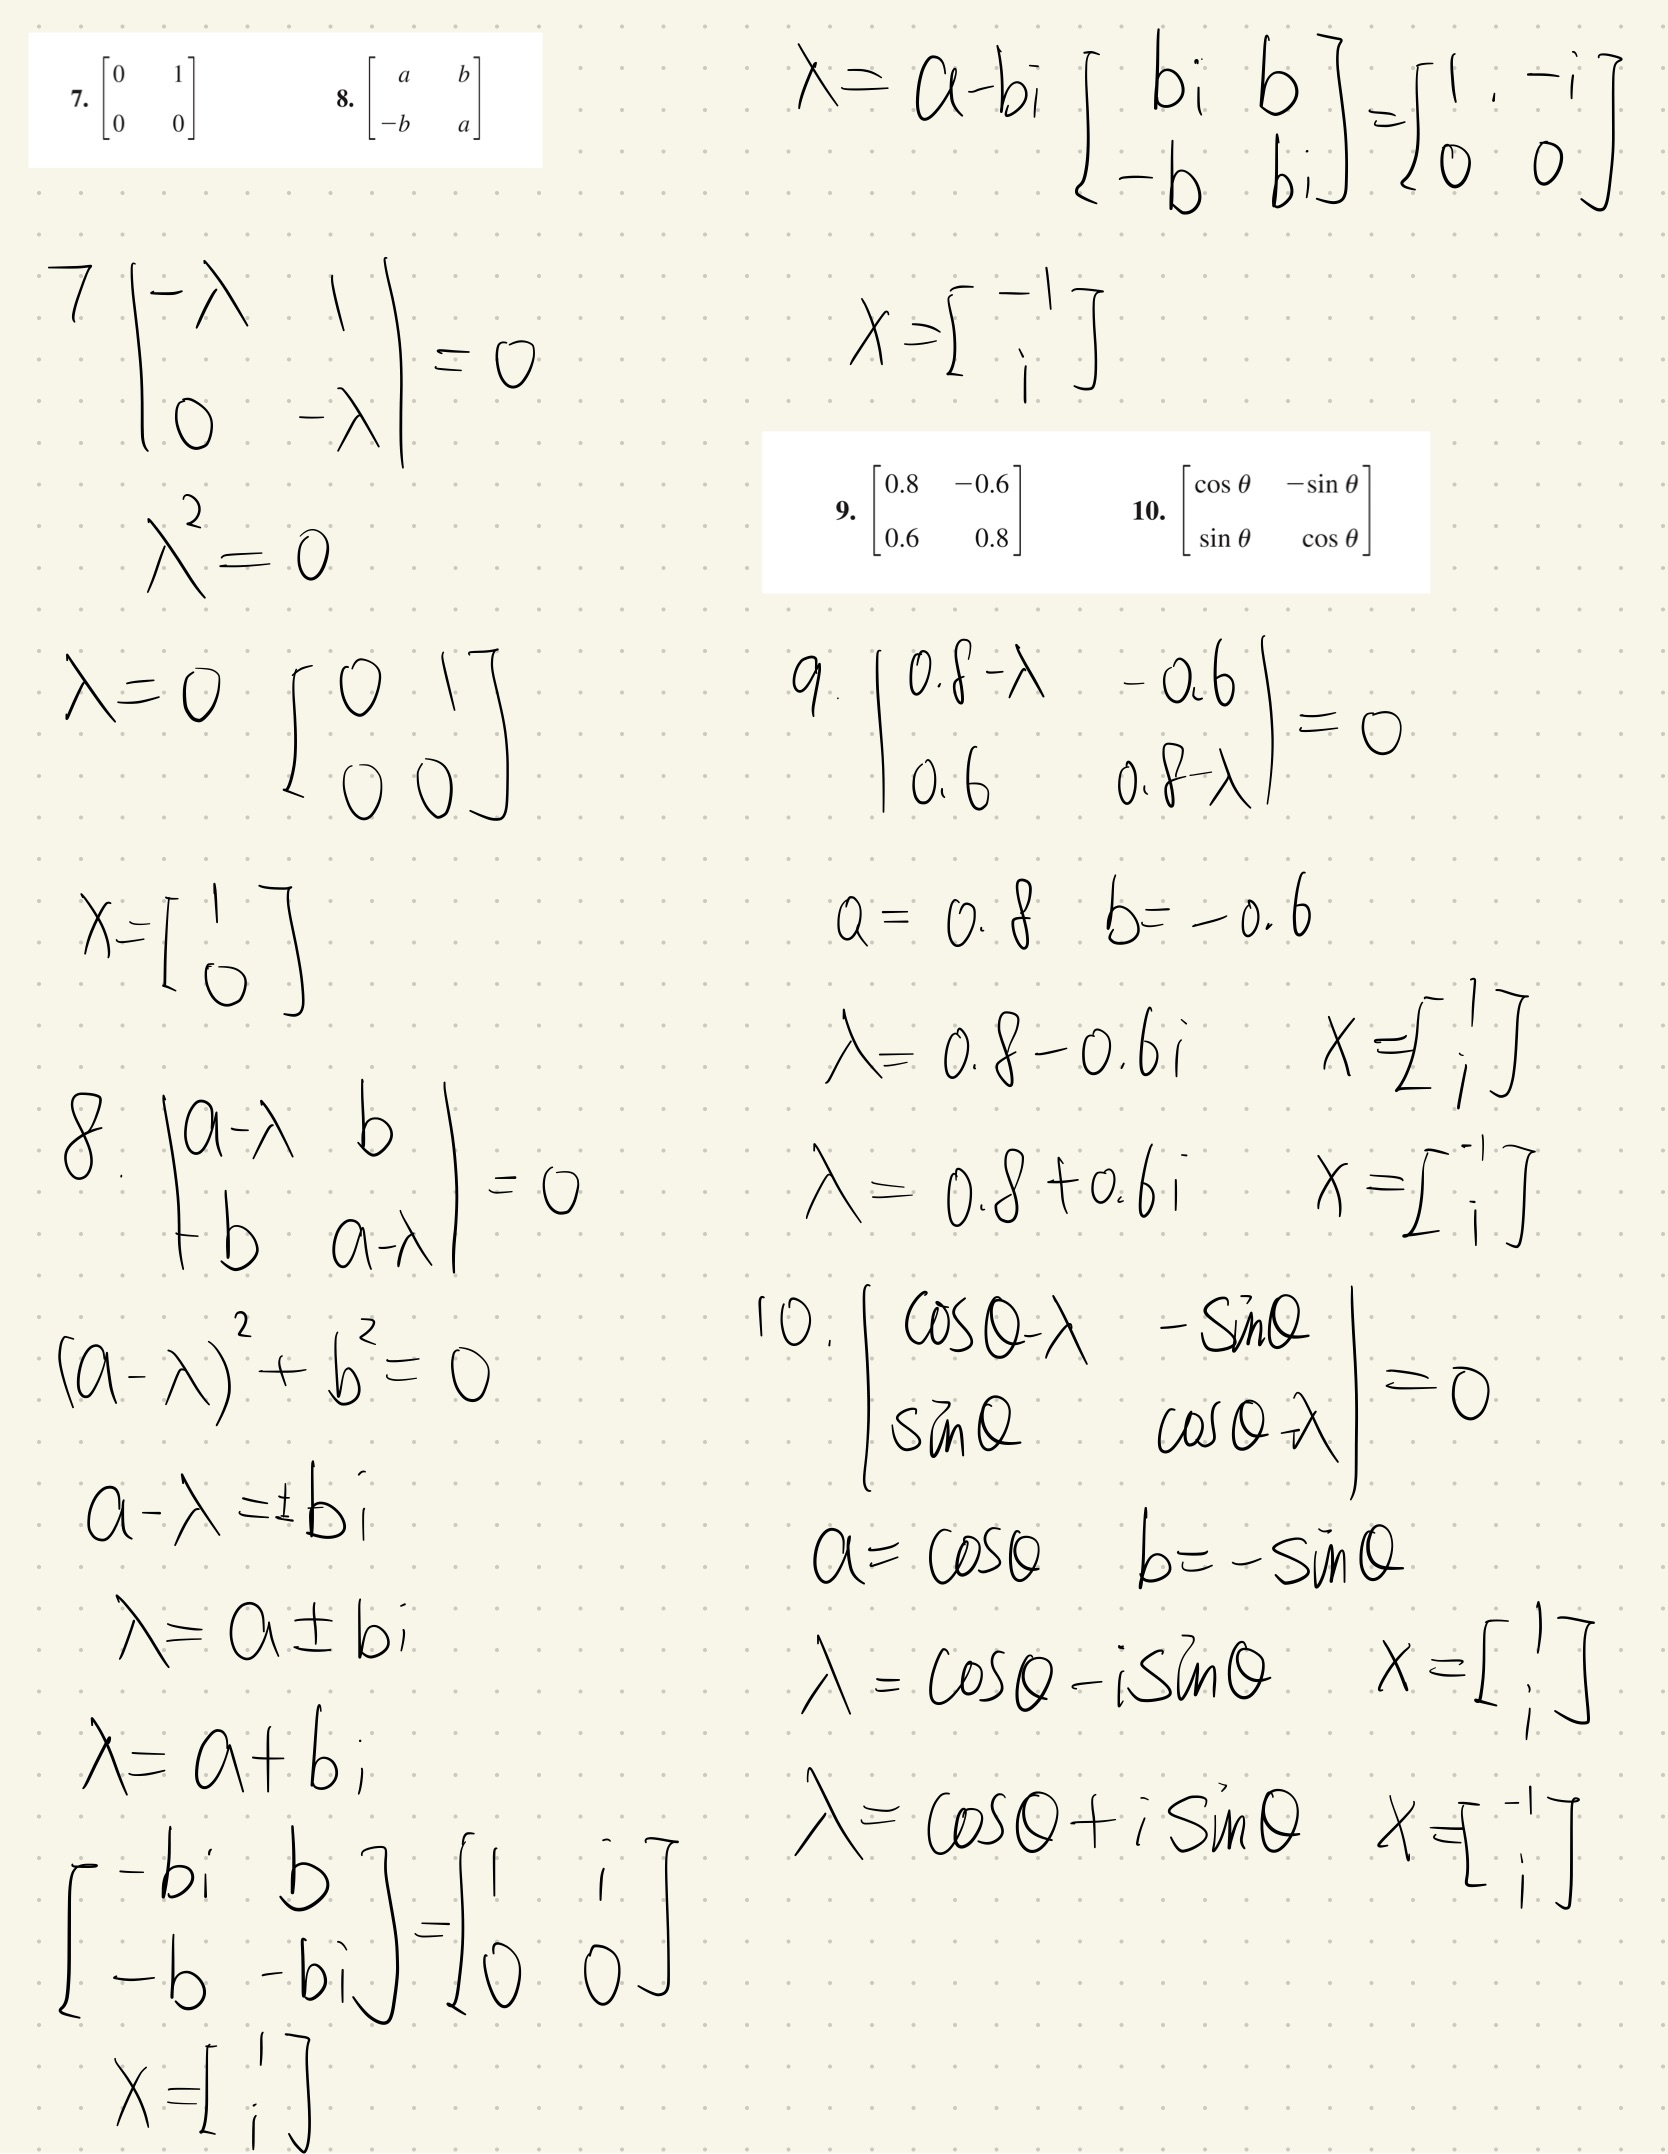 7. [0 1; 0 0] 8. [a b; −b a]
7 |−λ 1; 0 −λ| = 0
λ² = 0
λ = 0 [0 1; 0 0]
x = [1; 0]
8. |a−λ b; −b a−λ| = 0
(a−λ)² + b² = 0
a−λ = ±bi
λ = a ± bi
λ = a + bi
[−bi b; −b −bi] = [1 i; 0 0]
x = [1; i]
λ = a−bi [bi b; −b bi] = [1 −i; 0 0]
x = [−1; i]
9. [0.8 −0.6; 0.6 0.8] 10. [cos θ −sin θ; sin θ cos θ]
9. |0.8−λ −0.6; 0.6 0.8−λ| = 0
a = 0.8 b = −0.6
λ = 0.8−0.6i x = [1; i]
λ = 0.8+0.6i x = [−1; i]
10. |cosθ−λ −sinθ; sinθ cosθ−λ| = 0
a = cosθ b = −sinθ
λ = cosθ − isinθ x = [1; i]
λ = cosθ + i sinθ x = [−1; i]